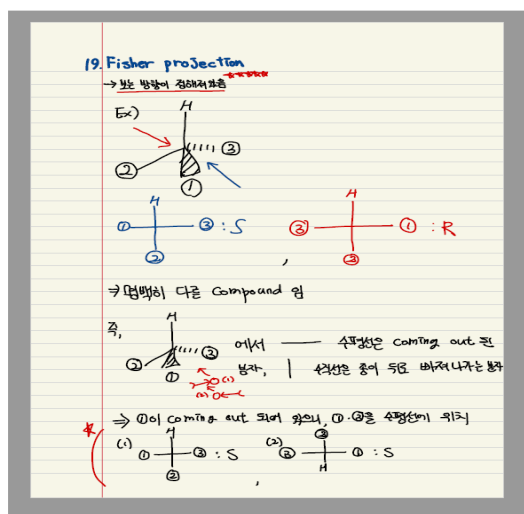 19. Fisher projection
→ 보는 방향이 정해져있음 *****
Ex)
H
② ③
①
H
① ③ : S
②
,
H
③ ① : R
②
⇒ 명백히 다른 Compound 임
즉,
H
② ③
①
에서 — 수평선은 coming out 된
분자, | 수직선은 종이 뒤로 빠져나가는 분자
(1)
(2)
⇒ ①이 coming out 되어 있으니, ①·③을 수평선에 위치
(1)
H
① ③ : S
②
,
(2)
②
③ ① : S
H